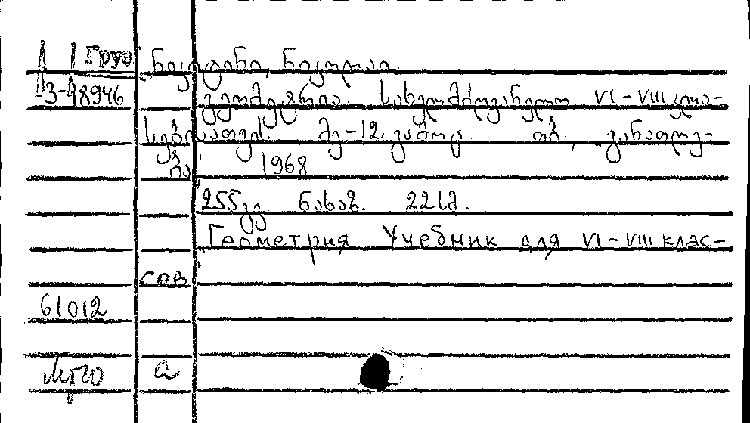 Груз ნიკიტინი, ნიკოლაი.
3-18946 გეომეტრია. სახელმძღვანელო VI-VIII კლა-
სებისათვის. მე-12 გამოც. თბ., განათლე-
ბა 1968
255 გვ ნახაზ. 22 სმ.
Геометрия Учебник для VI-VIII клас-
сов
61012
а